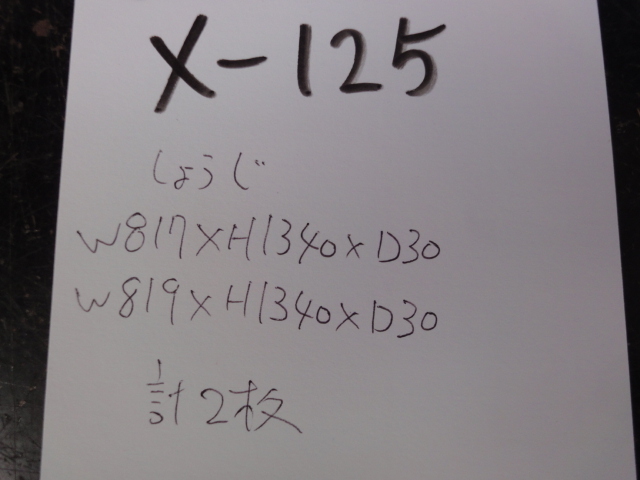 X-125
しょうじ
W817×H1340×D30
W819×H1340×D30
計2枚